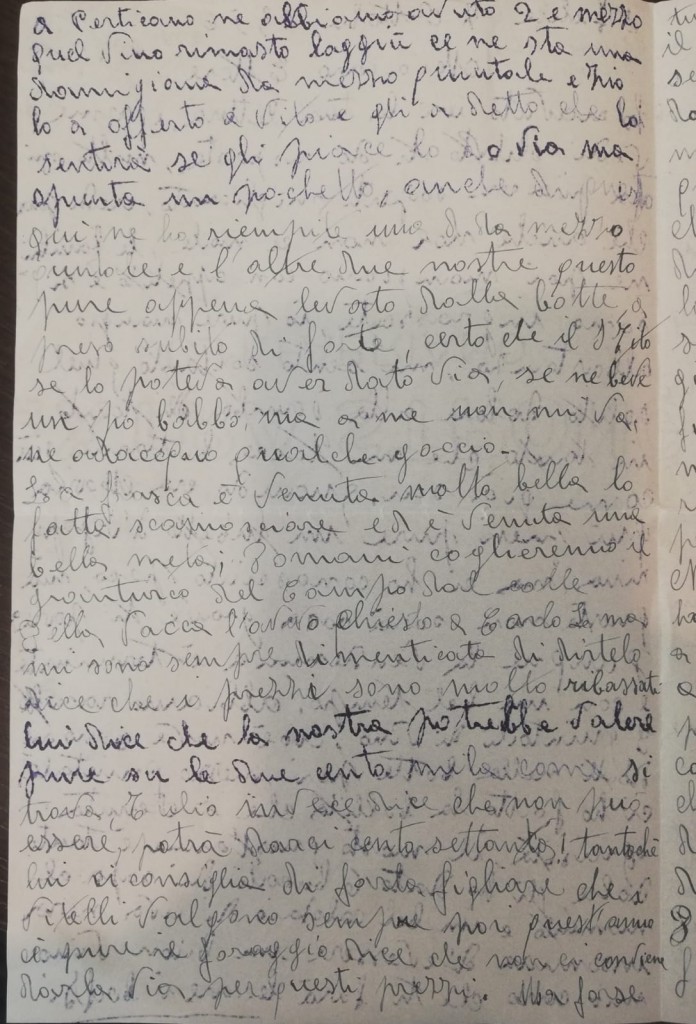 a Perticano ne abbiamo avuto 2 e mezzo
quel vino rimasto laggiù ce ne sta una
damigiana da mezzo quintale e Zio
lo a offerto a Vito e gli a detto che lo
sentirà se gli piace lo do via ma
apunta un pochetto, anche di questo
qui ne ho siempite una da mezzo
e l'altre due nostre questo
pure appena levato dalla botte, a
preso subito di forte, certo che il
se lo poteva aver dato via, se ne beve
un pò babbo, ma a me non mi va,
ne qualche goccio.
La è venuta molto bella lo
fatta, ed è venuta una
bella Domani coglieremo il
granturco del Campo dal
Della Vacca l'avevo chiesto a Carlo ma
mi sono sempre dimenticata di dirtelo
dice che i prezzi sono molto ribassati
lui dice che la nostra potrebbe valere
pure su le due cento mila come si
trova, invece dice che non può
essere, potrà darci cento settanta! tantochè
lui ci consiglia di farla figliare che i
vitelli valgono sempre poi quest'anno
c'è pure il foraggio dice che non ci conviene
darla via per questi prezzi. Ma forse